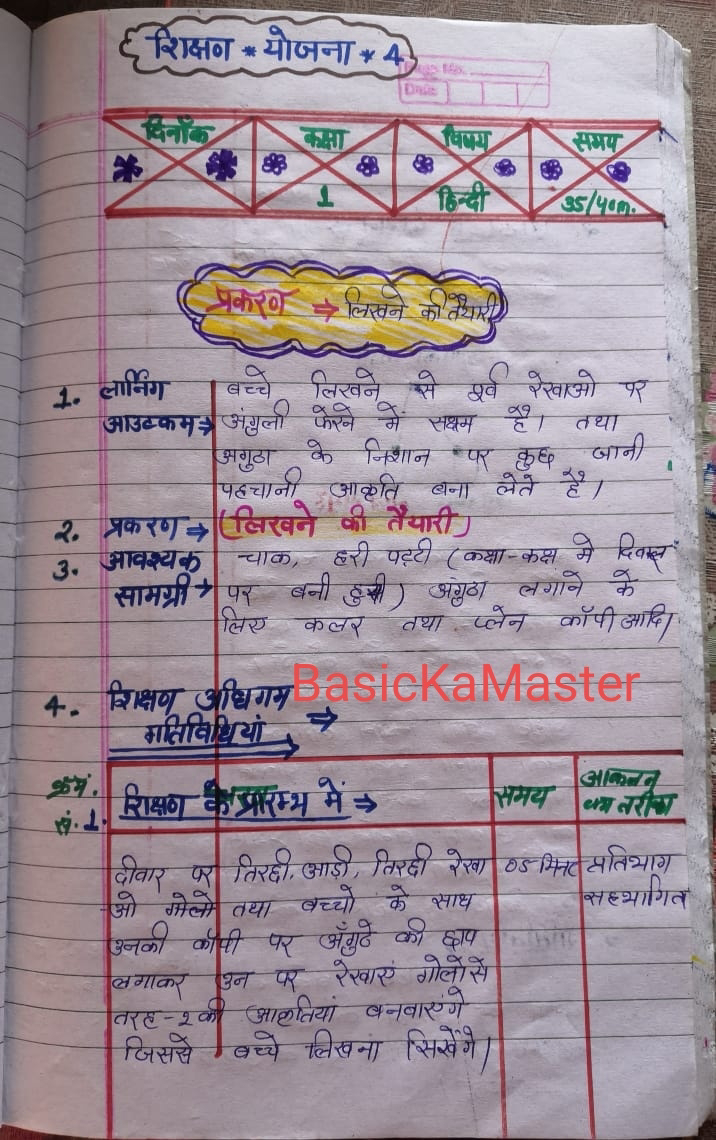 शिक्षण * योजना * 4
Page No.
Date
दिनाँक कक्षा विषय समय
1 हिन्दी 35/40m.
प्रकरण ⇒ लिखने की तैयारी
1. लार्निंग बच्चे लिखने से पूर्व रेखाओ पर
आउटकम⇒ अंगुली फेरने में सक्षम है। तथा
अगुठा के निशान पर कुछ जानी
पहचानी आकृति बना लेते है।
2. प्रकरण → (लिखने की तैयारी)
3. आवश्यक चाक, हरी पट्टी (कक्षा-कक्ष मे दिवाल
सामग्री → पर बनी हुयी) अंगुठा लगाने के
लिए कलर तथा प्लेन कॉपी आदि।
BasicKaMaster
4. शिक्षण अधिगम
गतिविधियां ⇒
क्रमं. सं. 1. शिक्षण के प्रारम्भ में ⇒ समय आकलन
का तरीका
दीवार पर तिरछी, आड़ी, तिरछी रेखा 05 मिनट प्रतिभाग
ओ गोलो तथा बच्चो के साथ सहभागित
उनकी कॉपी पर अँगुठे की छाप
लगाकर उन पर रेखाएं गोलोसे
तरह-2 की आकृतियां बनवाएंगे
जिससे बच्चे लिखना सिखेंगे।